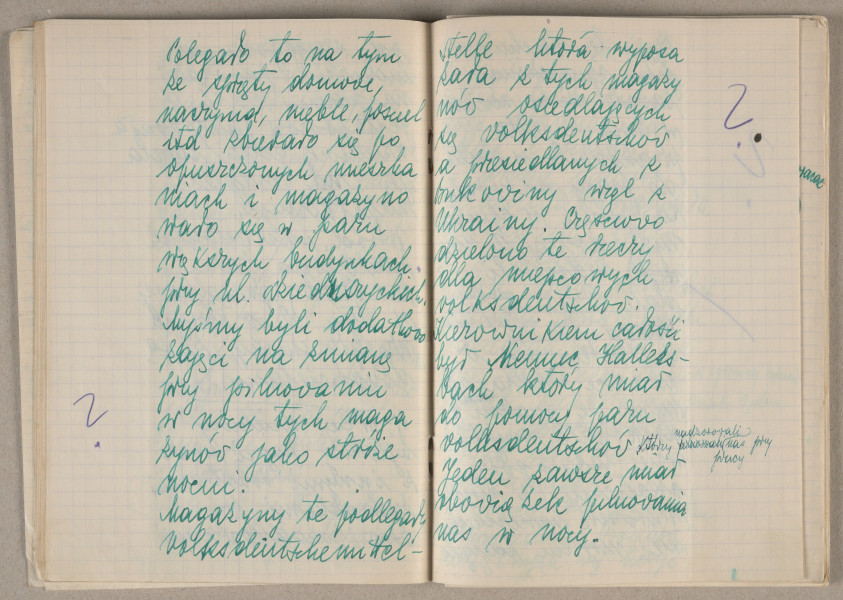 Polegało to na tym
że sprzęty domowe,
naczynia, meble, pościel
itd zbierało się po
opuszczonych mieszka
niach i magazyno
wało się w paru
większych budynkach
przy ul. Dzieduszyckich.
Myśmy byli dodatkowo
zajęci na zmianę
przy pilnowaniu
w nocy tych maga
zynów jako stróże
nocni.
Magazyny te podlegały
volksdeutschemittel-
stelle która wyposa
żała z tych magazy
nów osiedlających
się volksdeutschów
a przesiedlanych z
bukowiny węgl z
Ukrainy. Częściowo
dzielono te rzeczy
dla miejscowych
volksdeutschów.
Kierownikiem całości
był Niemiec Hallets-
bach który miał
do pomocy paru
volksdeutschów którzy nadzorowali nas przy
pracy
Jeden zawsze miał
obowiązek pilnowania
nas w nocy.
?
?